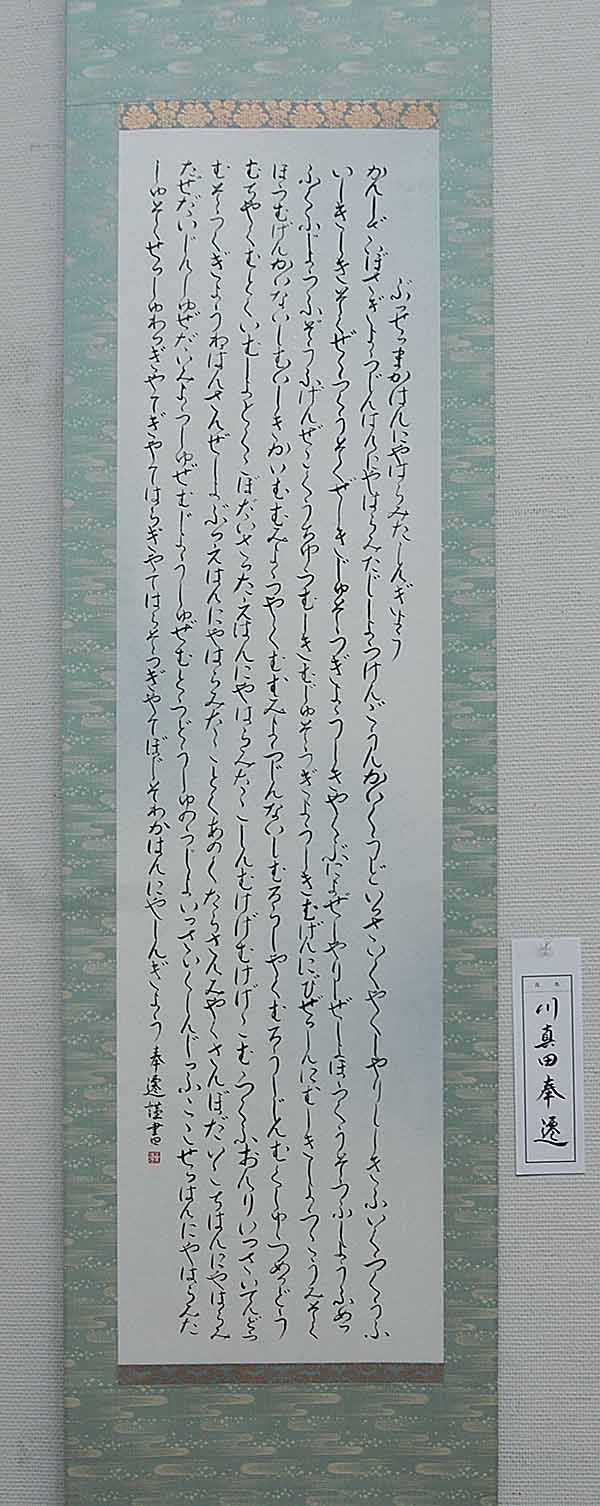 ぶっせつまかはんにやはらみたしんぎよう
かんじざいぼさぎようじんはんにやはらみたじしようけんごうんかいくうどいっさいくやくしやりししきふいくうくうふ
いしきしきそくぜくうくうそくぜしきじゆそうぎようしきやくぶによぜしやりしぜしよほうくうそうふしようふめつ
ふくふじようふぞうふげんぜこくうちゆうむしきむじゆそうぎようしきむげんにびぜっしんにむしきしようこうみそく
ほうむげんかいないしむいしきかいむむみようやくむむみようじんないしむろうしやくむろうしじんむくしゆうめつどう
むちやくむとくいむしよとくこぼだいさったえはんにやはらみたこしんむけげむけげこむうくふおんりいっさいてんどう
むそうくぎようねはんさんぜしよぶつえはんにやはらみたことくあのくたらさんみやくさんぼだいこちはんにやはらみ
たぜだいじんしゆぜだいみようしゆぜむじようしゆぜむとうどうしゆのうじよいっさいくしんじつふここせつはんにやはらみた
しゆそくせつしゆわつぎやてぎやてはらぎやてはらそうぎやてぼじそわかはんにやしんぎよう 奉遷謹書
川真田奉遷